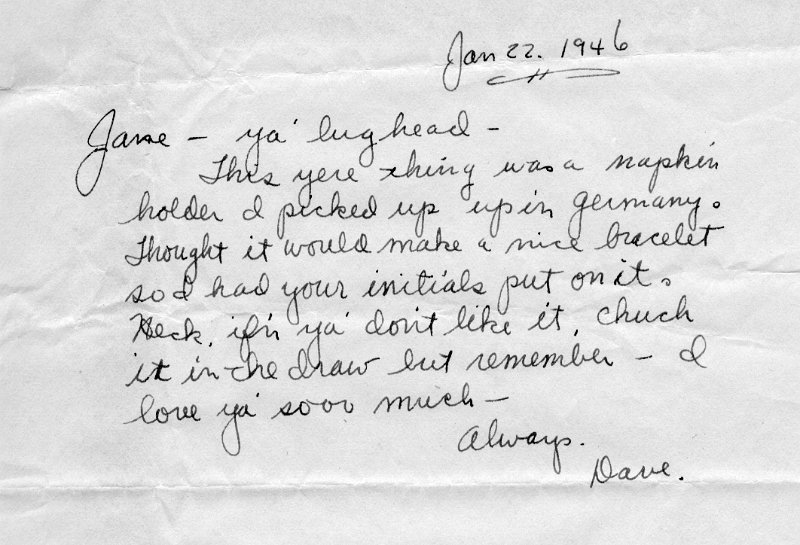 Jan 22. 1946
Jane - ya' lug head -
This yere thing was a napkin
holder I picked up up in Germany.
Thought it would make a nice bracelet
so I had your initials put on it.
Heck, if'n ya' don't like it, chuck
it in the draw but remember - I
love ya' sooo much -
Always.
Dave.